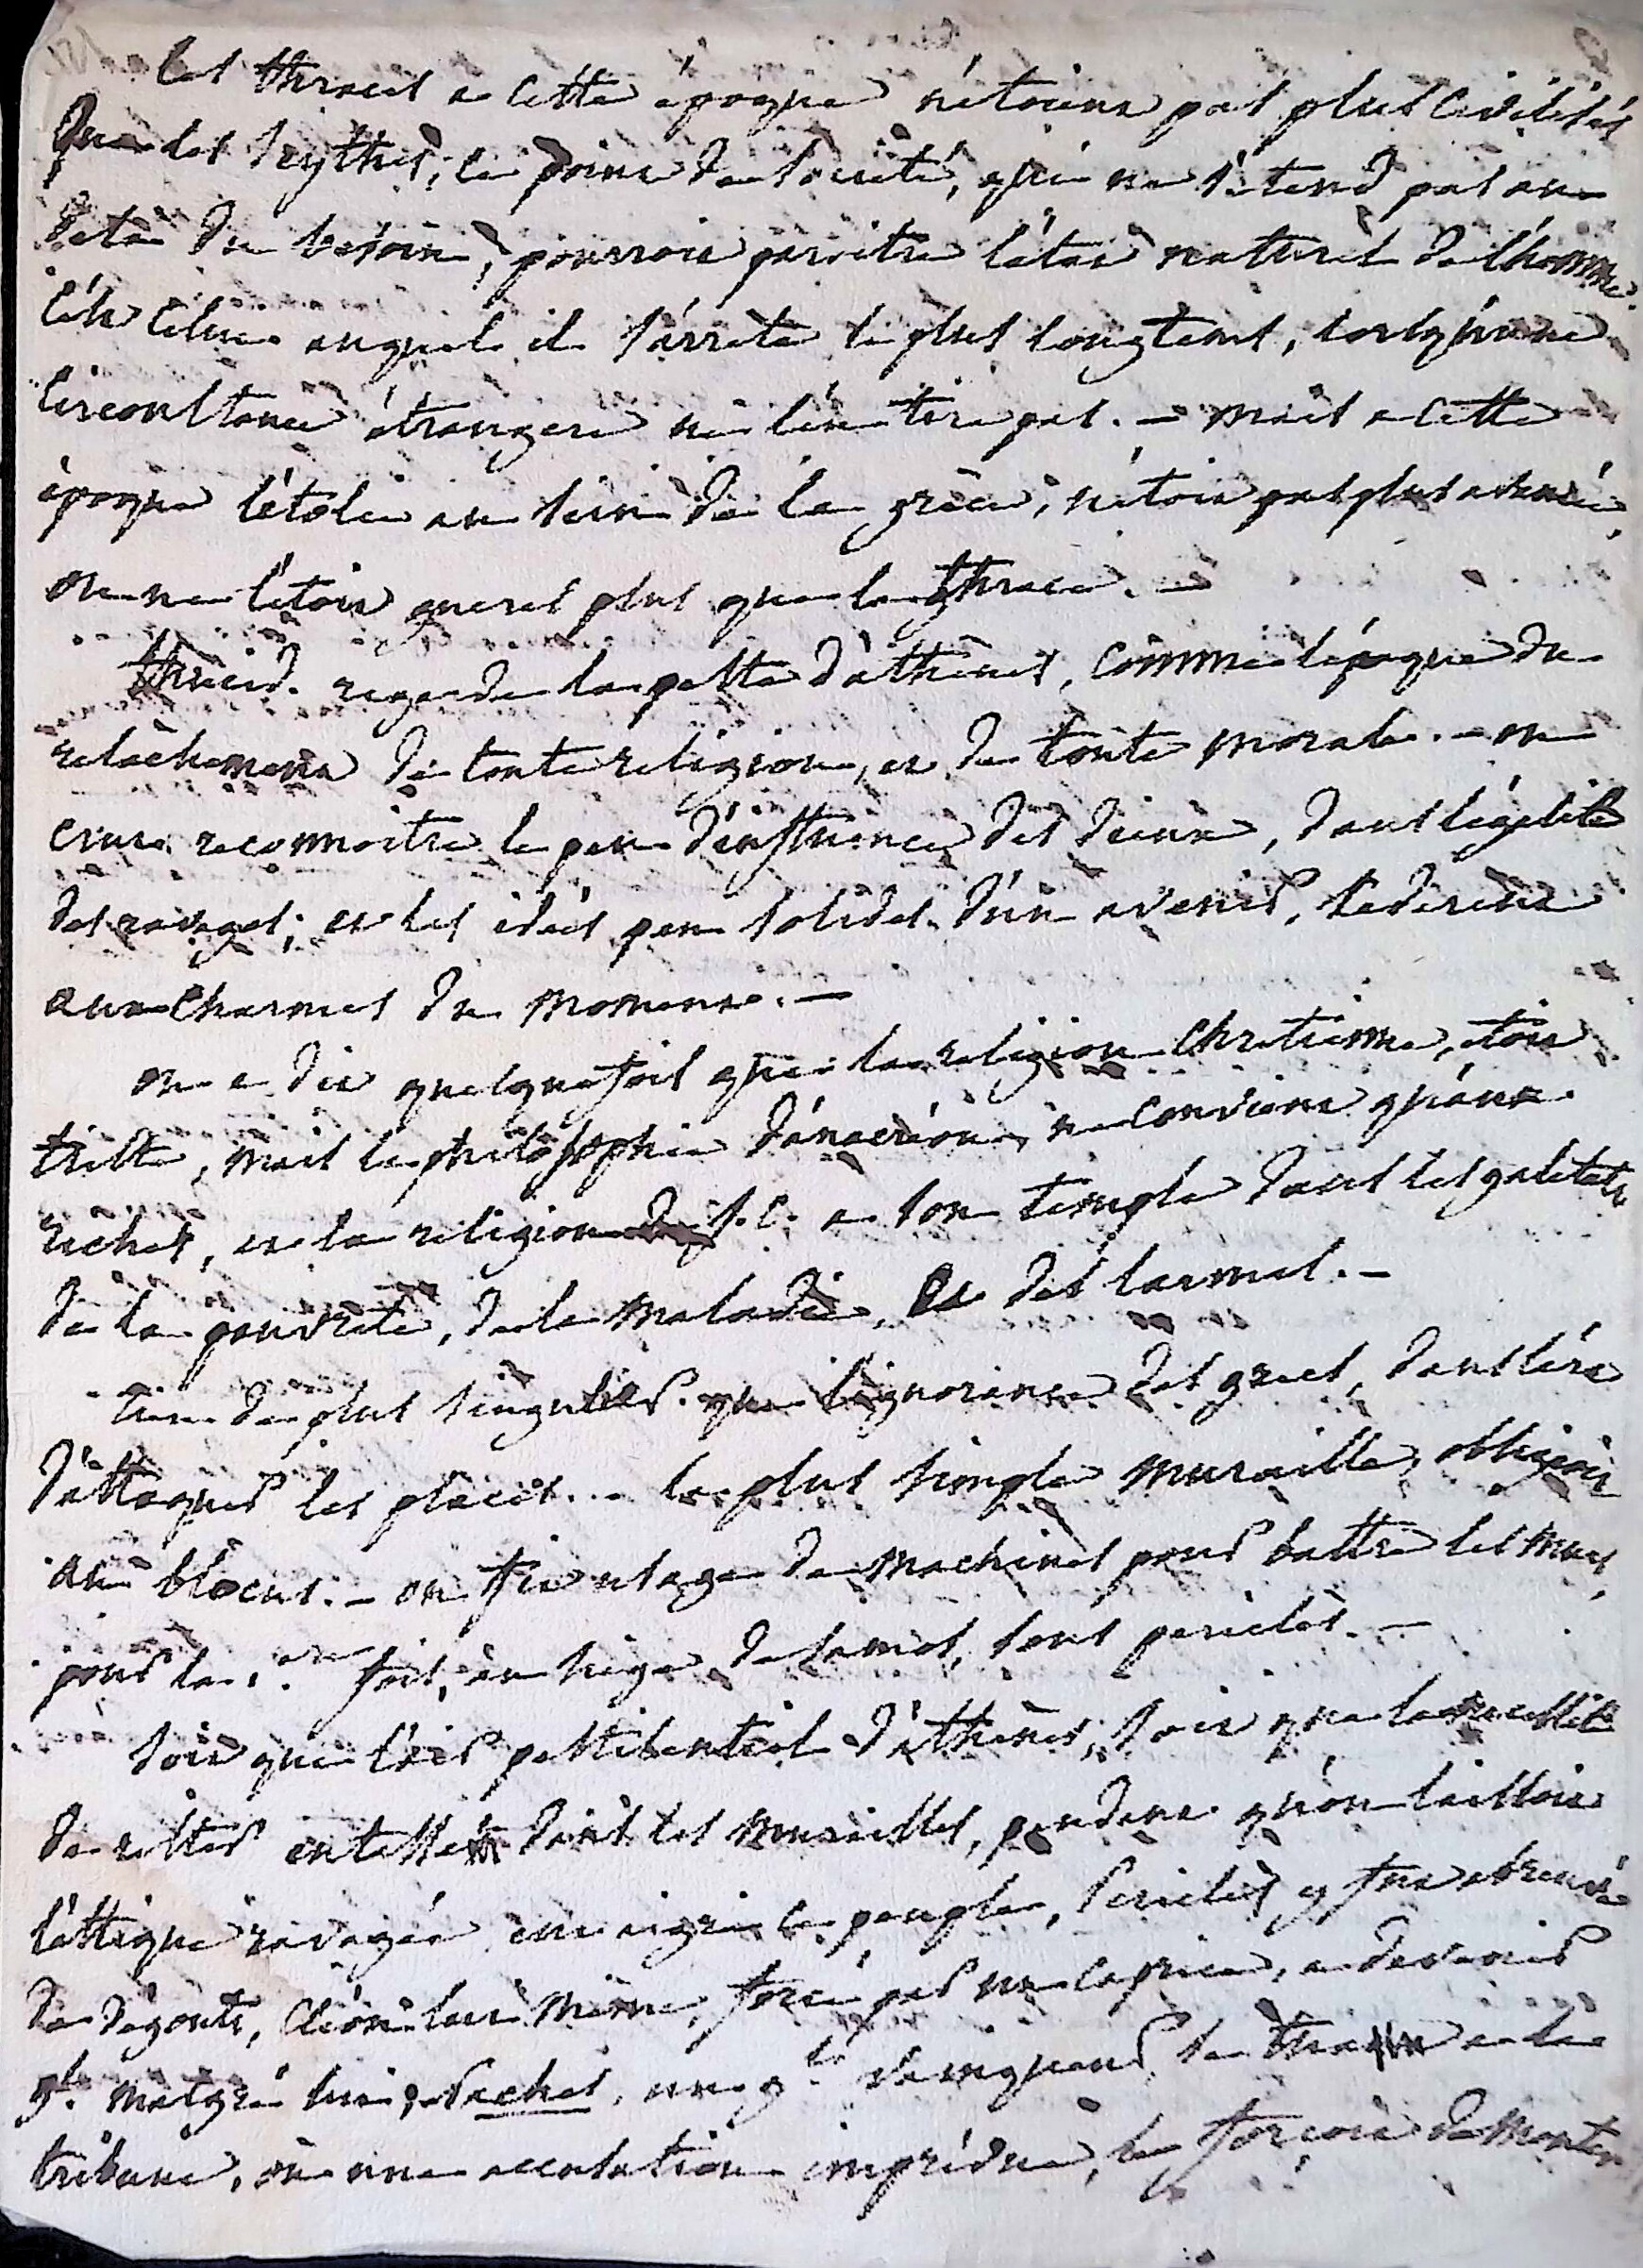 les thraces a cette époque n'étoient pas plus civilisés
que les scythes; le point de société, qui ne s'étend pas au
delà du besoin, pourroit paroitre l'état naturel de l'homme.
c'est celui auquel il s'arrête le plus longtems, lorsqu'une
circonstance étrangere ne l'en tire pas. – mais a cette
époque l'étolie au sein de la grèce, n'étoit pas plus avancée,
on ne l'étoit gueres plus que la thrace. –
thucid. regarde la peste d'athènes, comme l'époque du
relachement de toute religion, et de toute morale. – on
crut reconnoitre le peu d'influence des dieux, dans l'égalité
des ravages; et les idées peu solides d'un avenir, cederent
aux charmes du moment. –
on a dit quelquefois que la religion chretienne, étoit
triste, mais la philosophie d'anacréon, ne convient qu'aux
riches, et la religion de J. C. a son temple dans les galetas
de la pauvreté, de la maladie, et des larmes. –
rien de plus singulier que l'ignorance des grecs, dans l'art
d'attaquer les places. – la plus simple muraille, obligeoit
au blocus. – on fit usage de machines pour battre les murs,
pour la 1.ere fois, au siege de samos, sous periclès. –
soit que l'air pestilentiel d'athènes, soit que la necessité
de rester entassés dans les murailles, pendant qu'on laissoit
l'attique ravagée eut aigri le peuple, Periclès y fut abreuvé
de dégouts, Cléon lui même, forcé par un caprice, a devenir
g.l malgré lui; Paches, un g.l vainqueur, se tua a la
tribune, où une accusation imprévue, le forçoit de monter